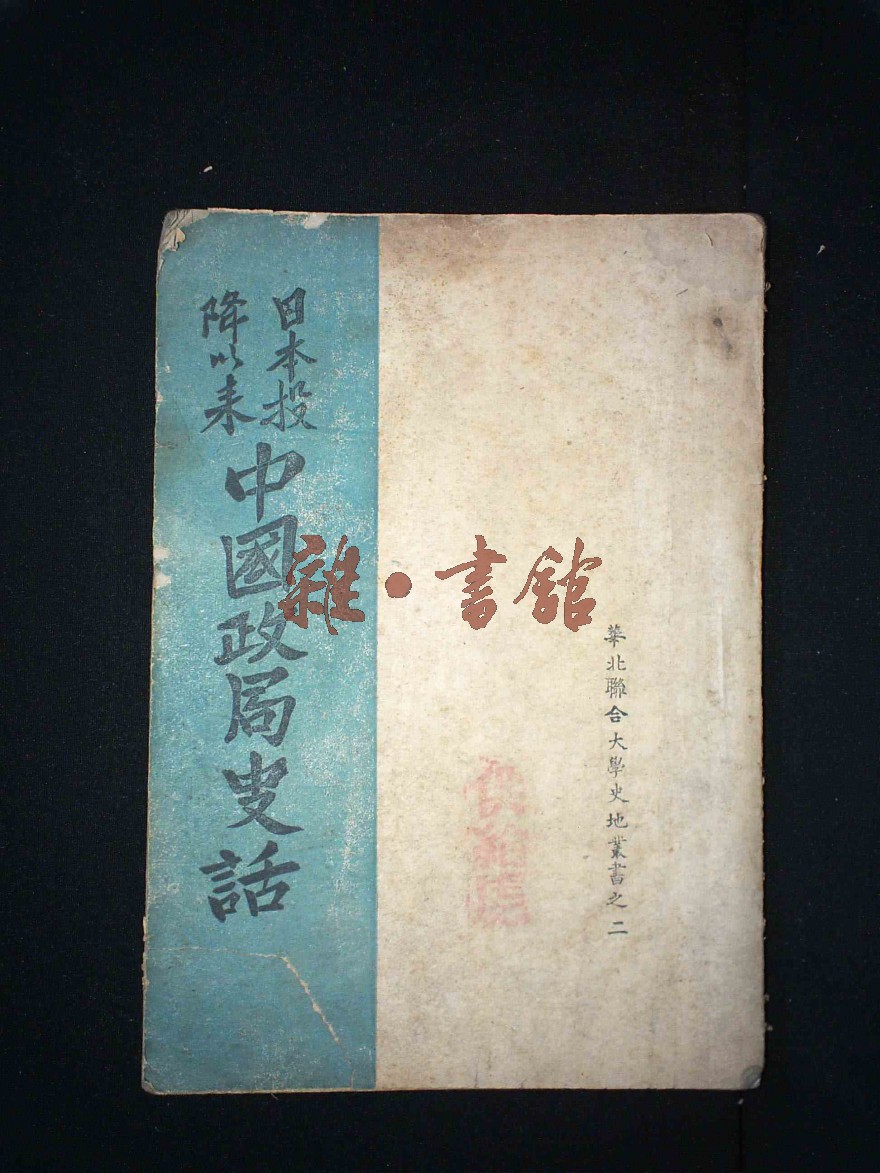 日本投
降以来
中國政局史話
雜·書館
華北聯合大學史地叢書之二